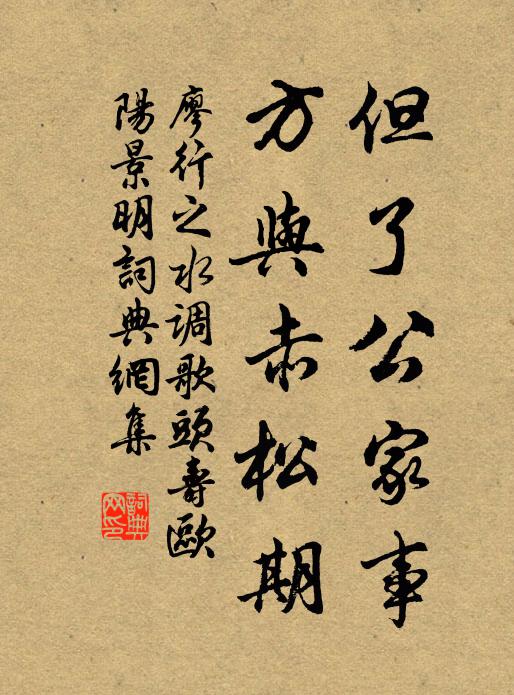 但了公家事
方與赤松期
廖行之水調歌頭壽歐
陽景明詞典網集
詞典
网印